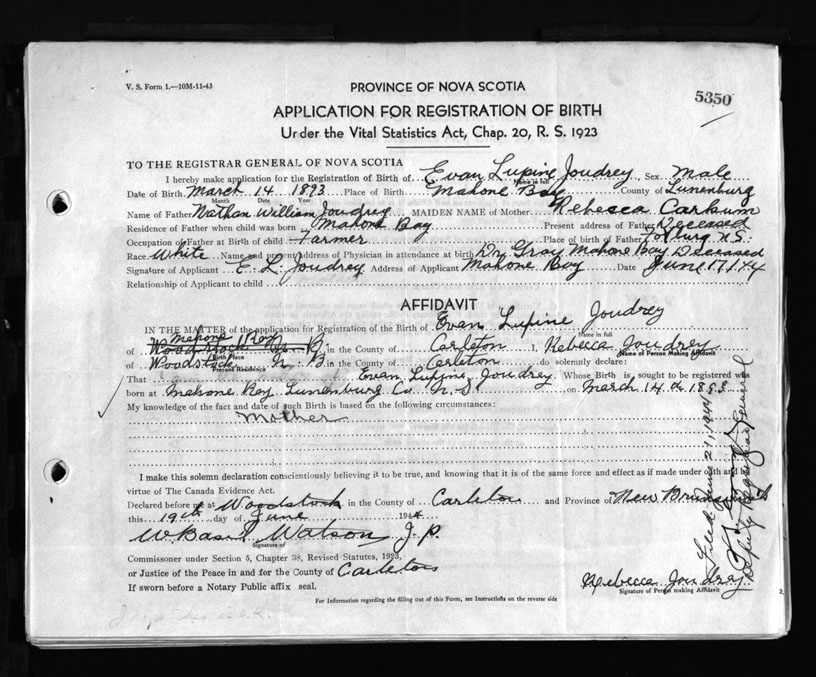 V. S. Form 1.—10M-11-43
PROVINCE OF NOVA SCOTIA
5350
APPLICATION FOR REGISTRATION OF BIRTH
Under the Vital Statistics Act, Chap. 20, R. S. 1923
TO THE REGISTRAR GENERAL OF NOVA SCOTIA
I hereby make application for the Registration of Birth of Evan Lupine Joudrey, Sex Male
Name in full
Date of Birth March 14 1893 Place of Birth Mahone Bay County of Lunenburg
Month Day Year
Name of Father Nathan William Joudrey MAIDEN NAME of Mother Rebecca
Residence of Father when child was born Mahone Bay Present address of Father Deceased
Occupation of Father at Birth of child Farmer Place of birth of Father N.S.
Race White Name and present address of Physician in attendance at birth Dr Gray Mahone Bay Deceased
Signature of Applicant E. L. Joudrey Address of Applicant Mahone Bay Date June 17
Relationship of Applicant to child
AFFIDAVIT
IN THE MATTER of the application for Registration of the Birth of Evan Lupine Joudrey
Name in full
Mahone Bay
of Woodstock N. B. in the County of Carleton I, Rebecca Joudrey
Birth Place Name of Person Making Affidavit
of Woodstock N. B. in the County of Carleton do solemnly declare:
Present Residence
That Evan Lupine Joudrey Whose Birth is sought to be registered was
born at Mahone Bay Lunenburg Co. N. S. on March 14th 1893
My knowledge of the fact and date of such Birth is based on the following circumstances:
Mother
I make this solemn declaration conscientiously believing it to be true, and knowing that it is of the same force and effect as if made under oath and by
virtue of The Canada Evidence Act.
Declared before me at Woodstock in the County of Carleton and Province of New Brunswick
this 19th day of June 1944
W Basil Watson J. P.
Signature of
Commissioner under Section 5, Chapter 38, Revised Statutes, 1923,
or Justice of the Peace in and for the County of Carleton
If sworn before a Notary Public affix seal.
Rebecca Joudrey
Signature of Person making Affidavit
For Information regarding the filling out of this Form, see Instructions on the reverse side
Filed June 21, 1944
Deputy Registrar General